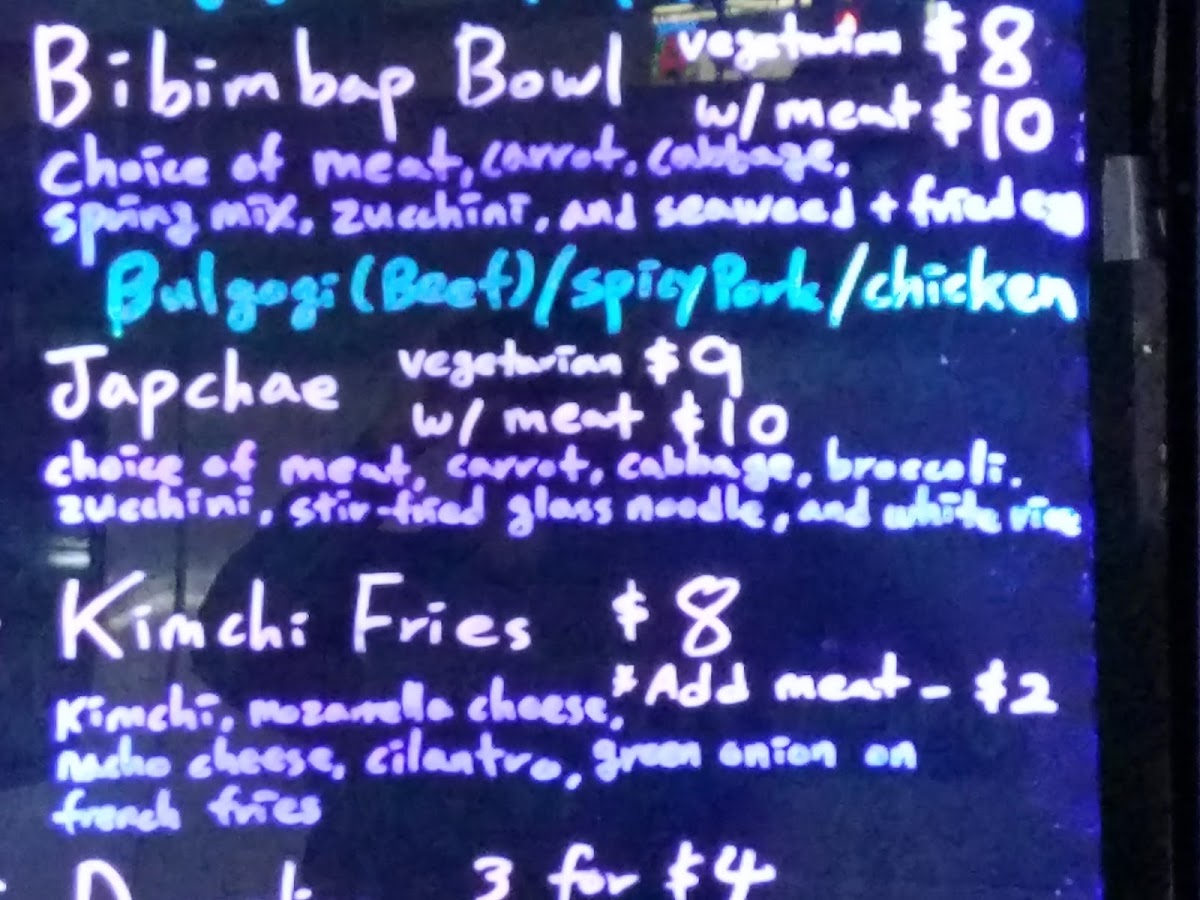 Bibimbap Bowl vegetarian $8
w/ meat $10
choice of meat, carrot, cabbage,
spring mix, zucchini, and seaweed + fried egg
Bulgogi (Beef)/spicy Pork/chicken
Japchae vegetarian $9
w/ meat $10
choice of meat, carrot, cabbage, broccoli.
zucchini, stir-fried glass noodle, and white rice
Kimchi Fries $8
*Add meat - $2
Kimchi, mozarella cheese,
nacho cheese, cilantro, green onion on
french fries
3 for $4